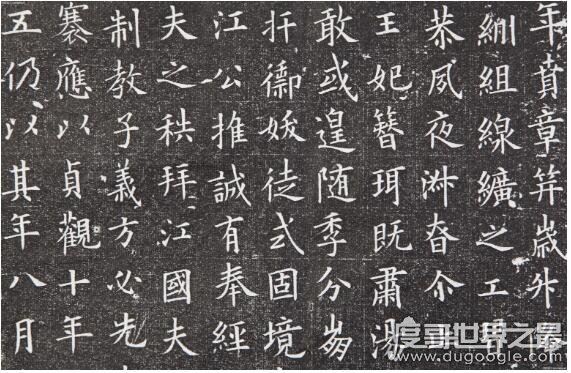 年賁章笄歲外
組線纊之工
恭夙夜
王妃簪珥既肅湯
敢或遑随季分崤
扞禦徒式固境
江公推誠有奉經
夫之秩拜江國夫
制教子義方必先
褰應以貞觀十年
五仍以其年八月
度哥世界之最
www.dugoogle.com